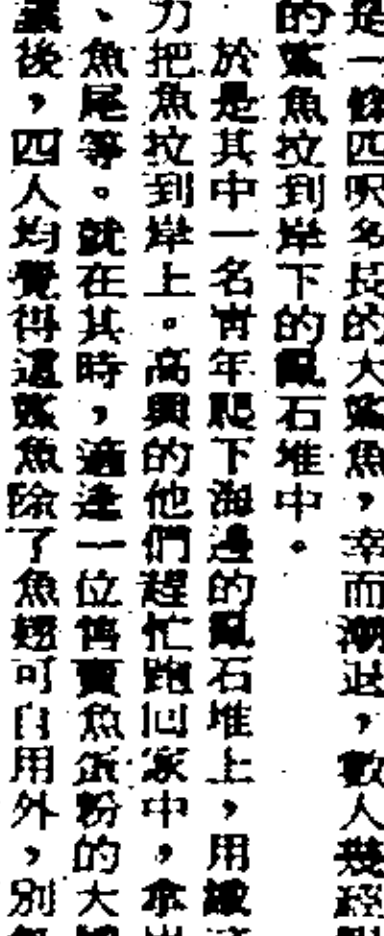 是一條四呎多長的大鯊魚，幸而潮退，數人幾經
的鯊魚拉到岸下的亂石堆中。
於是其中一名青年爬下海邊的亂石堆上，用繩
力把魚拉到岸上。高興的他們趕忙跑回家中，拿出
、魚尾等。就在其時，適逢一位售賣魚蛋粉的大
後，四人均覺得這鯊魚除了魚翅可自用外，別